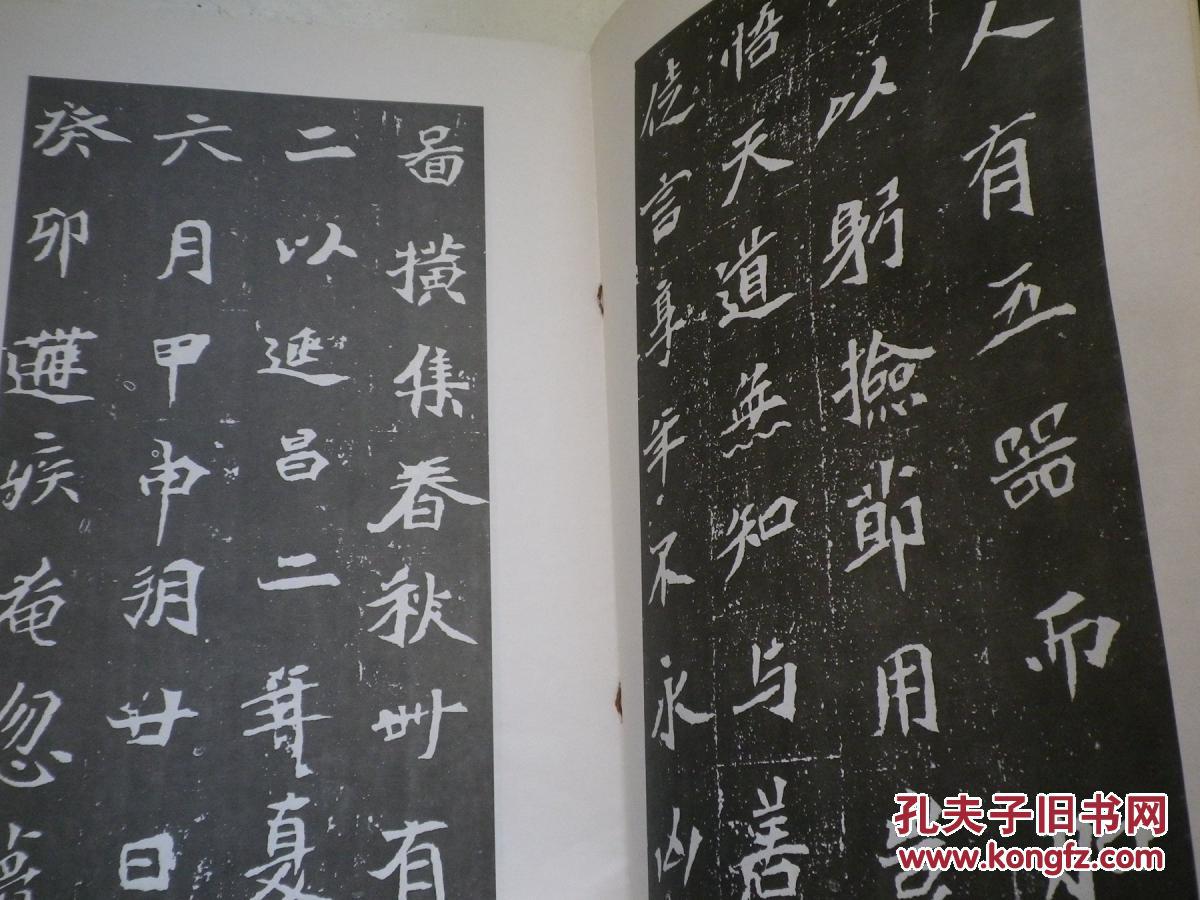 人有五器而
以躬撿莭用
悟天道無知与善
言享年不永
啚撗集春秋卌有
二以延昌二年夏
六月甲申朔廿日
癸卯遘疾奄忽薨
孔夫子旧书网
www.kongfz.com